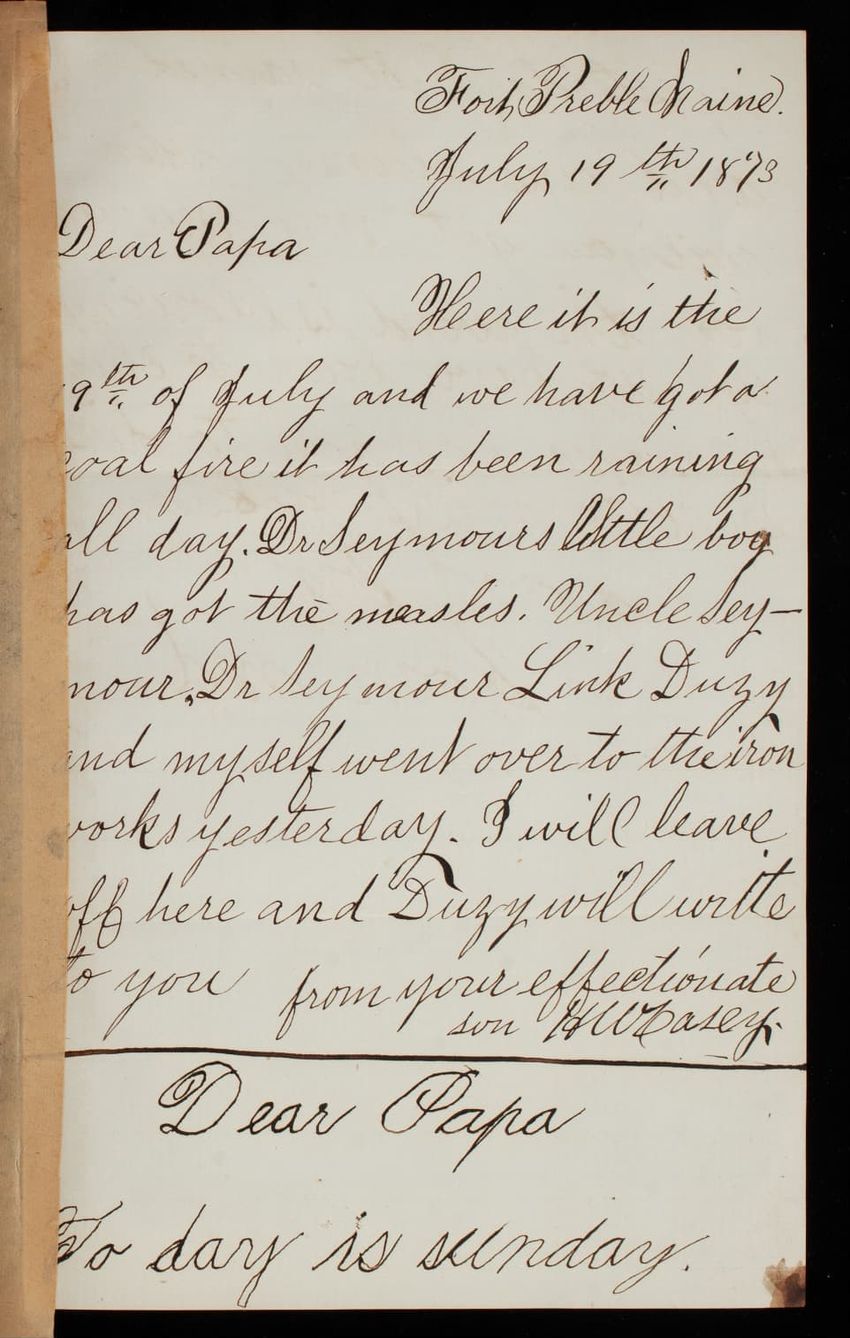 Fort, Preble Maine.
July, 19th 1873
Dear Papa
Here it is the
19th of July and we have got a
coal fire it has been raining
all day. Dr Seymours little boy
has got the measles. Uncle Sey-
mour, Dr Seymour Link Duzy
and myself went over to the iron
works yesterday. I will leave
off here and Duzy will write
to you from your effectionate
son HW Casey.
Dear Papa
To day is sunday.